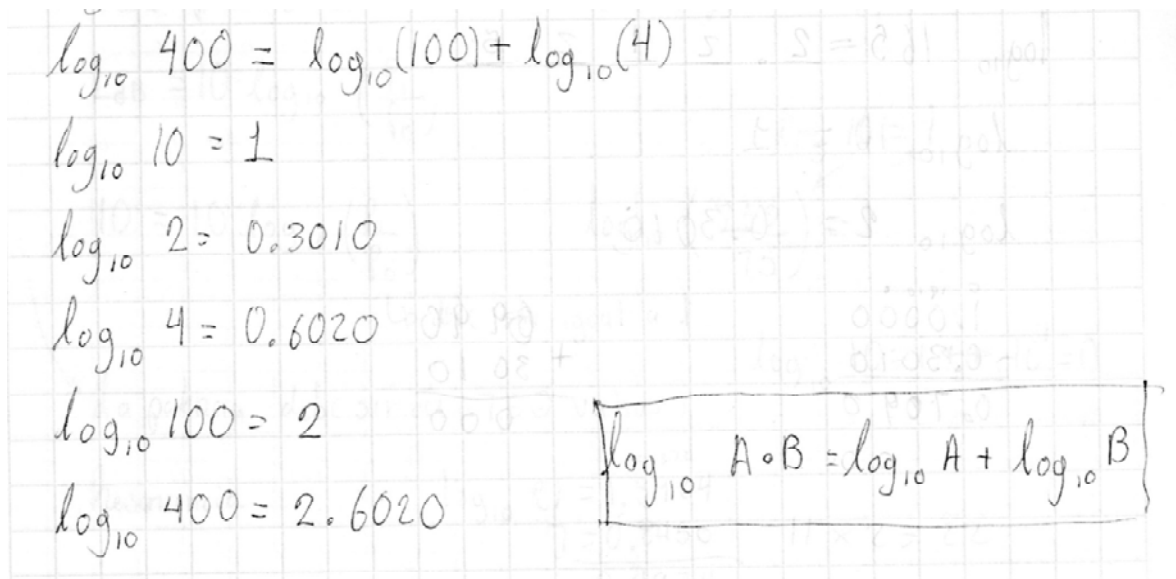 log₁₀ 400 = log₁₀(100) + log₁₀(4)
log₁₀ 10 = 1
log₁₀ 2 = 0.3010
log₁₀ 4 = 0.6020
log₁₀ 100 = 2
log₁₀ 400 = 2.6020
log₁₀ A∘B = log₁₀ A + log₁₀ B